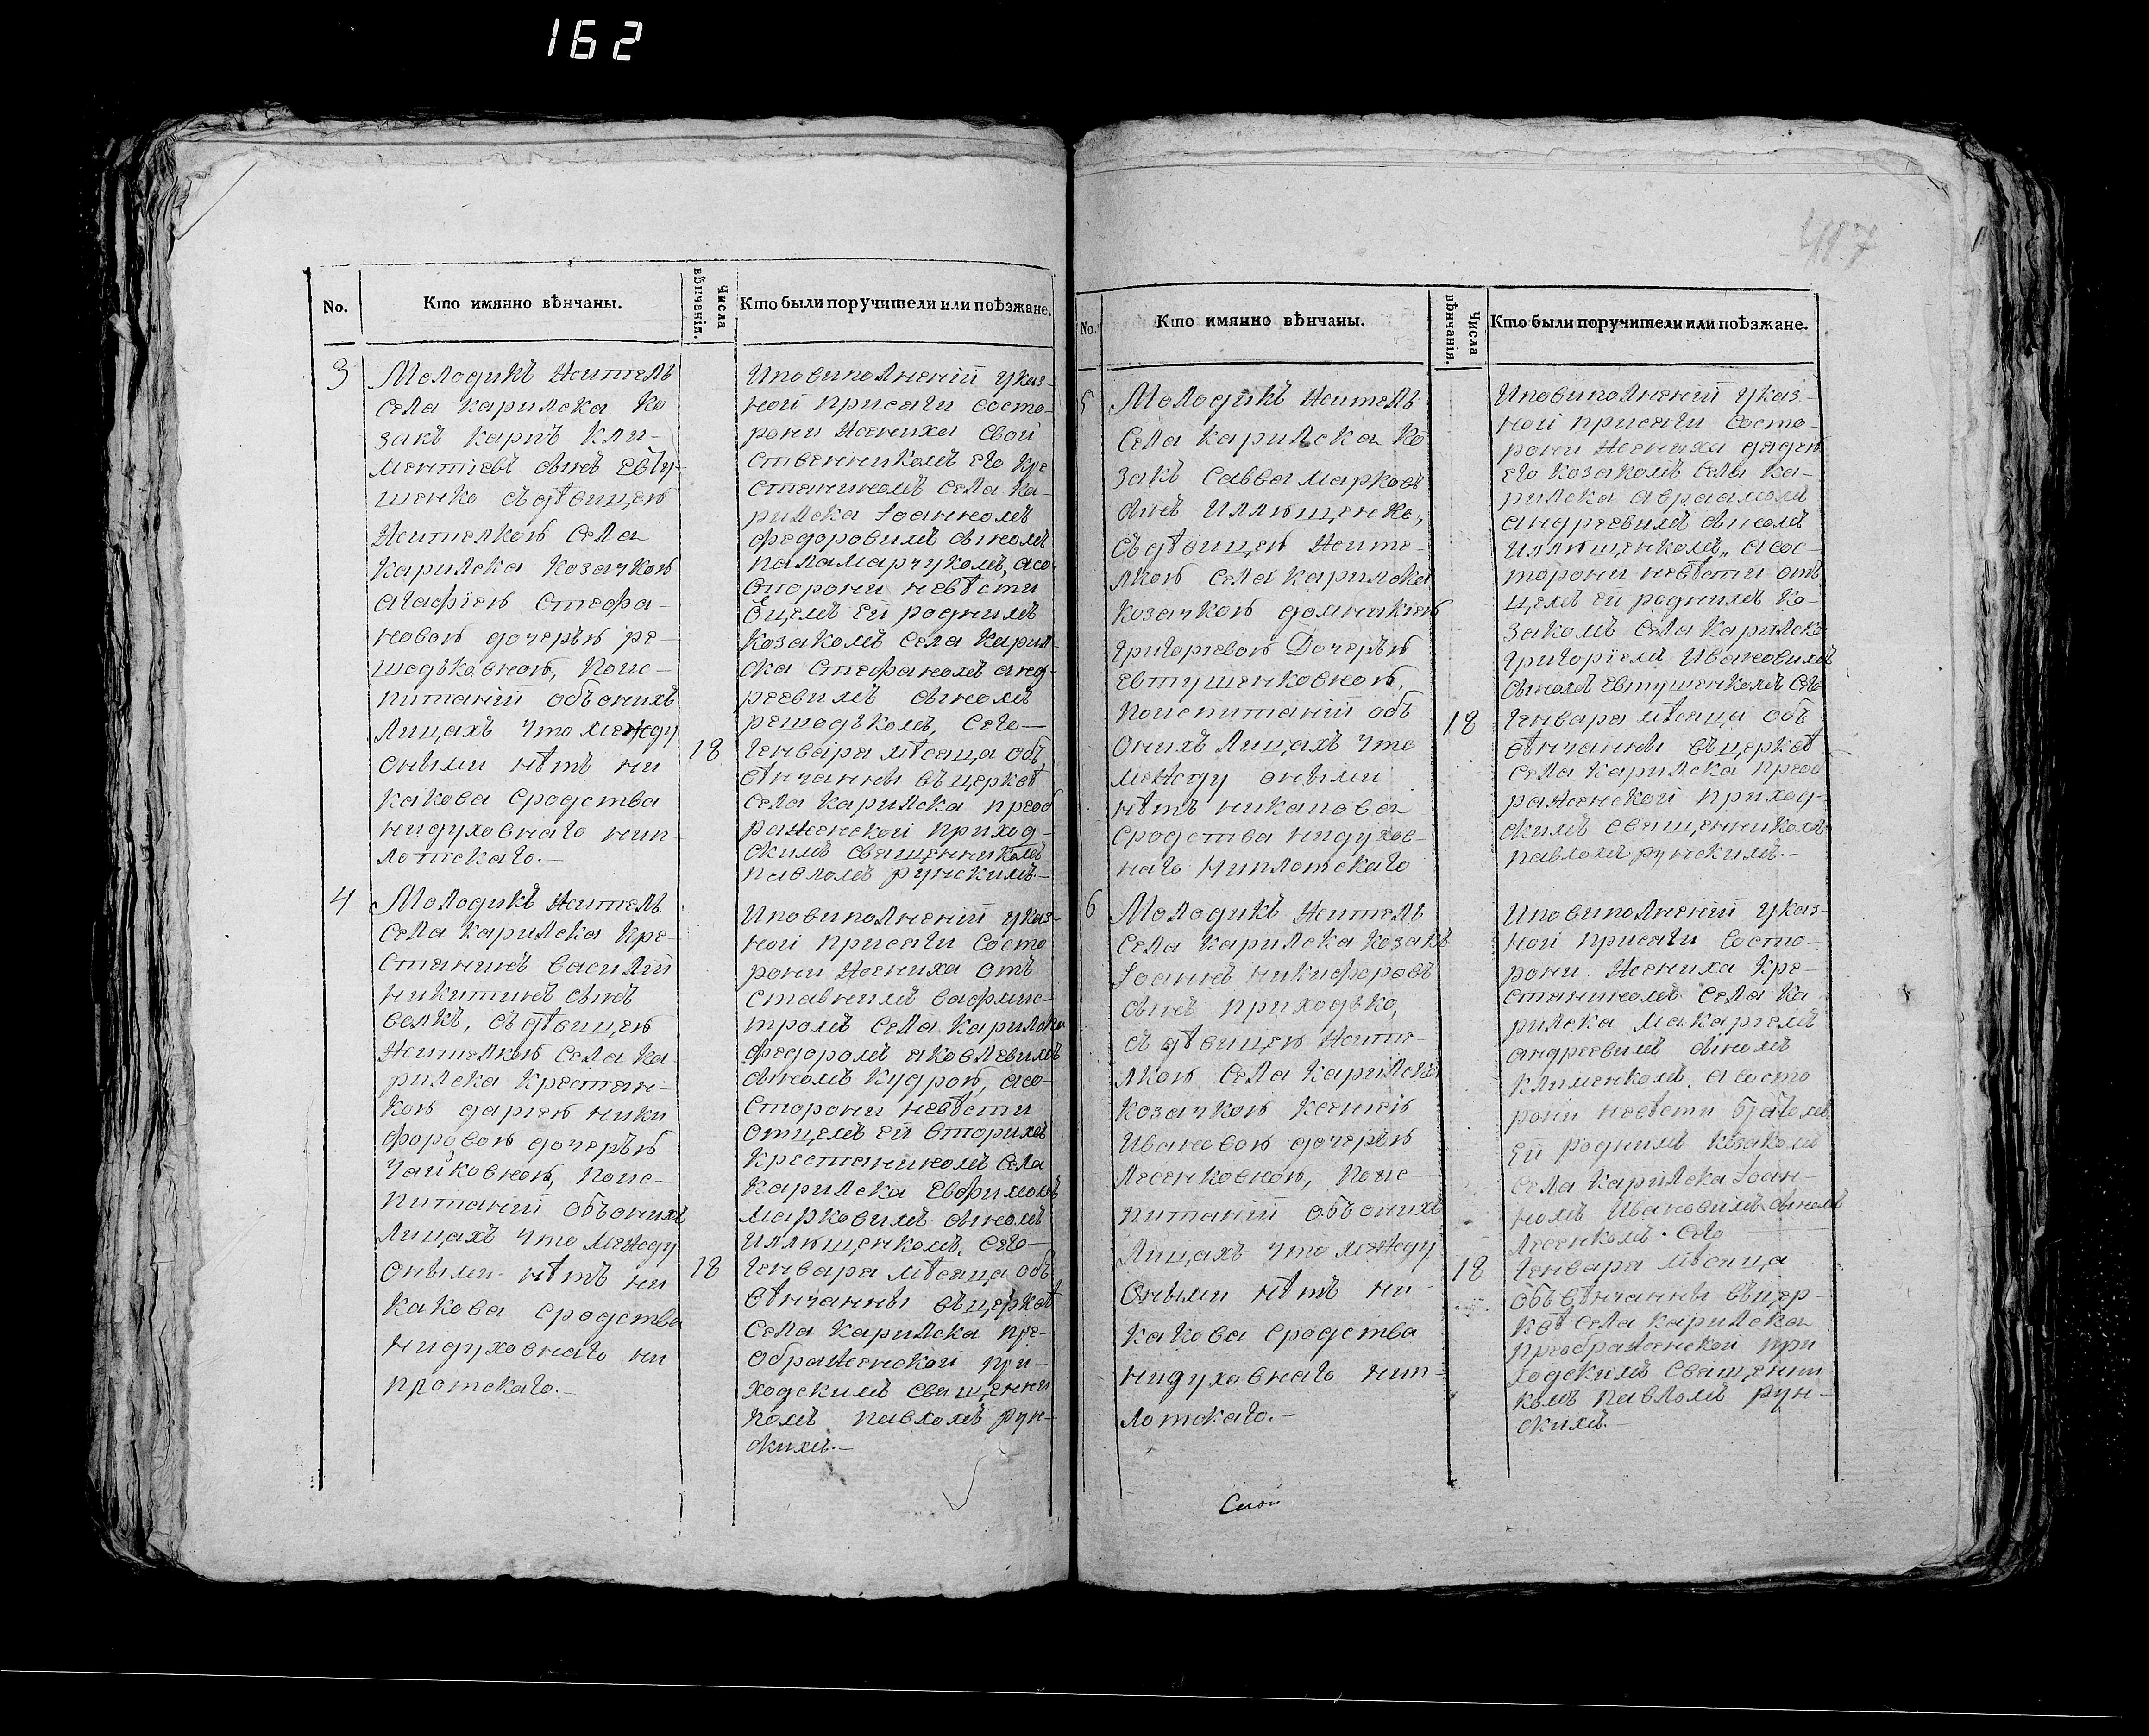 162
417
No.
Кто имянно вѣнчаны.
Числа вѣнчанія.
Кто были поручители или поѣзжане.
3
Молодикъ житель
села карилска ко
закъ карпъ кли-
ментіевъ снъ евту-
шенко съ дѣвицею
жителкою села
карилска козачкою
агафіею стефа-
новою дочерью ре-
шодковною, поис-
питаніи объ онихъ
лицахъ что между
оными нѣтъ ни
какова сродства
нидуховнаго нип-
лотскаго.-
18
Иповиполненіи указ-
ной присяги состо-
рони жениха свой
ственникомъ его кре
стяниномъ села ка-
рилска Іоанномъ
федоровимъ сномъ
паламарчукомъ, асо
сторони невѣсти
оцемъ ей роднимъ
козакомъ села карил-
ска стефаномъ анд-
реевимъ сномъ
решодкомъ, сего-
генваря мѣсяца объ
вѣнчанны въ церквѣ
села карилска преоб
раженской приход-
скимъ священникомъ
павломъ рунскимъ-
4
Молодикъ житель
села карилска кре-
стянинъ василій
никитинъ снъ
велкъ, съ дѣвицею
жителкою села ка-
рилска крестян-
кою даріею ники
форовою дочерью
чайковною, поис-
питаніи объ онихъ
лицахъ что между
оными нѣтъ ни
какова сродства
нидуховнаго ни
плотскаго.-
18
Иповиполненіи указ-
ной присяги состо
рони жениха отъ
ставнимъ вафмис-
тромъ села карилска
федоромъ яковлевимъ
сномъ кудрою, асо-
сторони невѣсти
отцемъ ей вторимъ
крестяниномъ села
карилска евфимомъ
марковимъ сномъ
илляшенкомъ, сего-
генваря мѣсяца объ
вѣнчанны въ церквѣ
села карилска пре-
ображенской при-
ходскимъ священни
комъ павломъ рун-
скимъ.-
No.
Кто имянно вѣнчаны.
Числа вѣнчанія.
Кто были поручители или поѣзжане.
5
Молодикъ житель
села карилска ко
закъ савва марковъ
снъ илляшенко,
съ дѣвицею жите-
лкою села карилска
козачкою домникіею
григоріевою дочерью
евтушенковною,
поиспитаніи объ
онихъ лицахъ что
между оными
нѣтъ никапова
сродства нидухов-
наго ниплотскаго
18
Иповиполненіи указ-
ной присяги состо-
рони жениха дядею
его козакомъ села ка-
рилска авраамомъ
андреевимъ сномъ
илляшенкомъ, асос-
торони невѣсти отъ
цемъ ей роднимъ ко-
закомъ села карилска
григоріемъ ивановимъ
сномъ евтушенкомъ сего
генваря мѣсяца объ
вѣнчанны въ церквѣ
села карилска преоб
раженской приход-
скимъ священникомъ
павломъ рунскимъ.-
6
Молодикъ житель
села карилска козакъ
Іоаннъ никифоровъ
снъ приходко,
съ дѣвицею жите-
лкою села карилска
козачкою ксеніею
ивановою дочерью
лесенковною, поис-
питаніи объ онихъ
лицахъ что между
оными нѣтъ ни-
какова сродства
нидуховнаго нип-
лотскаго.-
18
Иповиполненіи указ-
ной присяги состо-
рони жениха кре-
стяниномъ села ка
рилска макаріемъ
андреевимъ сномъ
клименкомъ, а состо
рони невѣсти братомъ
ей роднимъ козакомъ
села карилска Іоан-
номъ ивановимъ сномъ
лесенкомъ. сего
генваря мѣсяца
объ вѣнчанны въ цер-
квѣ села карилска
преображенской при
ходскимъ священни
комъ павломъ рун-
скимъ.-